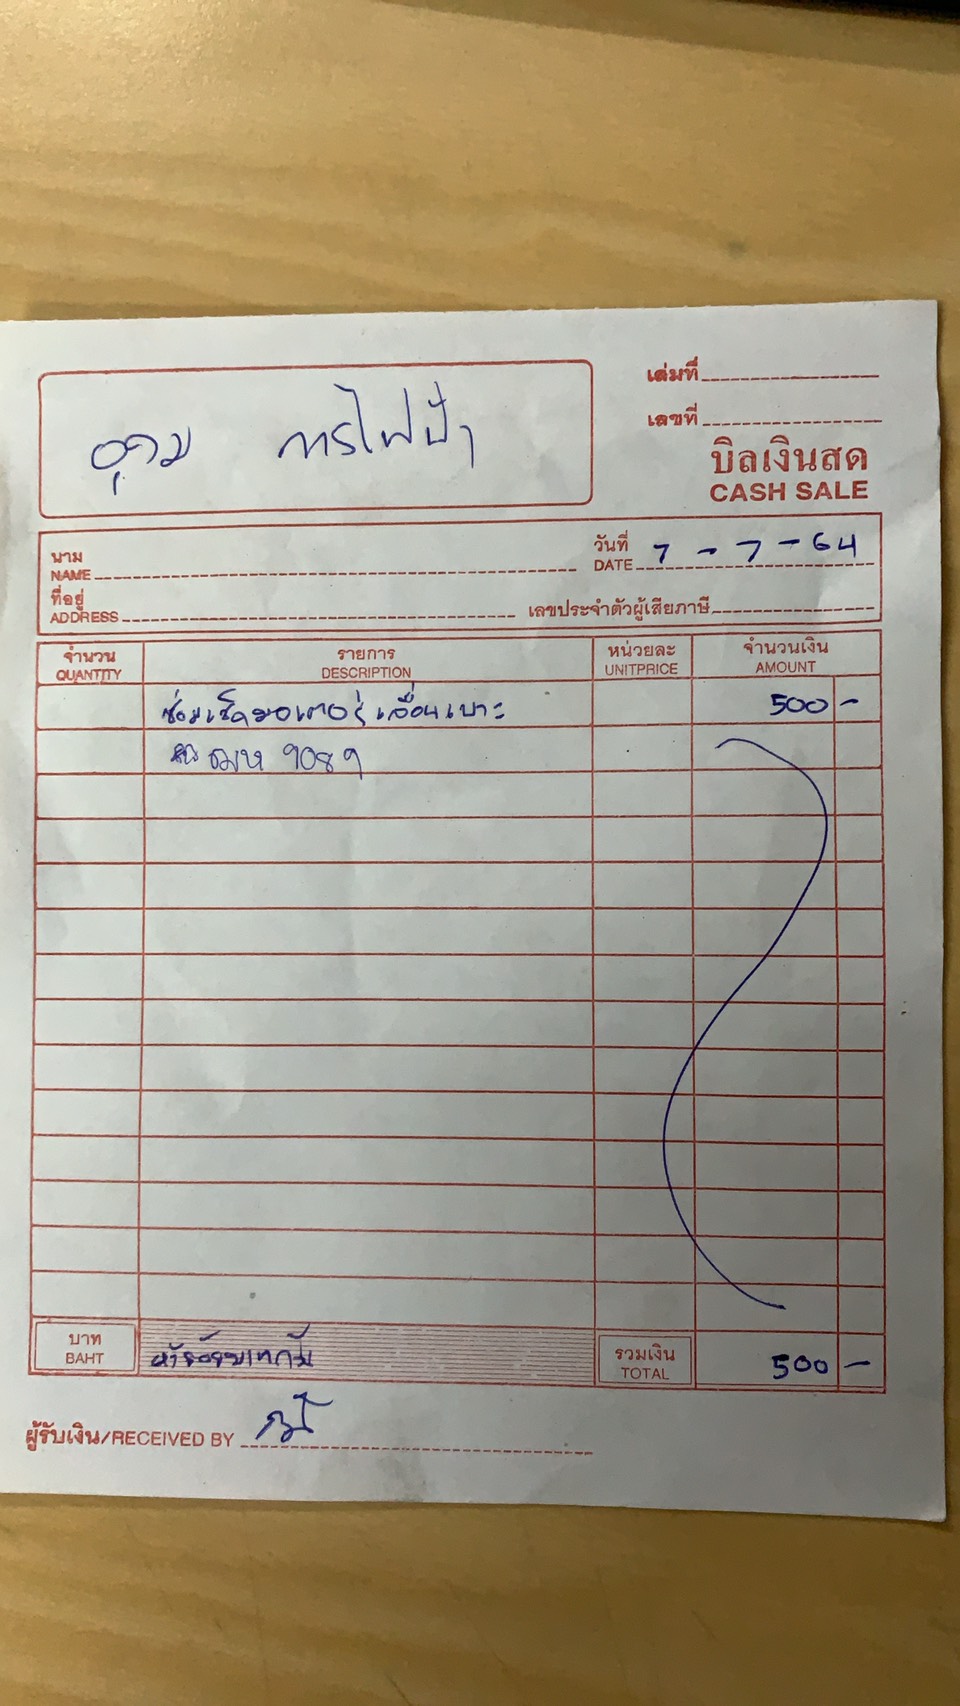 อุดม การไฟฟ้า
เล่มที่
เลขที่
บิลเงินสด
CASH SALE
นาม
NAME
วันที่
DATE 7 - 7 - 64
ที่อยู่
ADDRESS
เลขประจำตัวผู้เสียภาษี
จำนวน รายการ หน่วยละ จำนวนเงิน
QUANTITY DESCRIPTION UNITPRICE AMOUNT
ซ่อมเช็คมอเตอร์เลื่อนเบาะ 500 -
9089
บาท
BAHT
ห้าร้อยบาทถ้วน
รวมเงิน
TOTAL
500 -
ผู้รับเงิน/RECEIVED BY